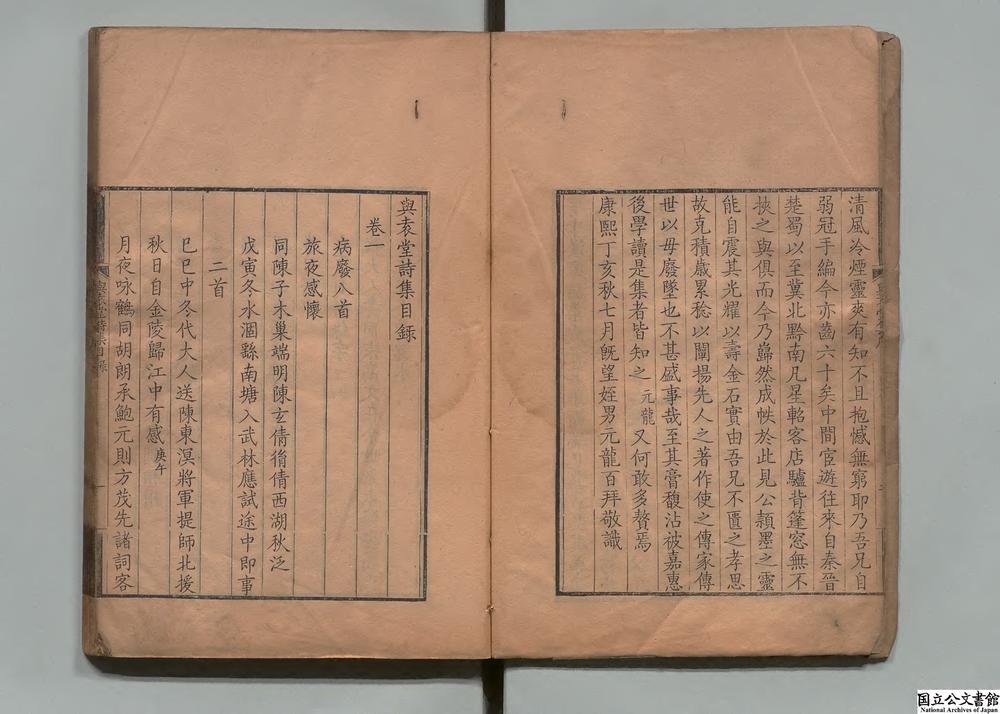 清風冷煙靈爽有知不且抱憾無窮耶乃吾兄自
弱冠手編今亦齒六十矣中間宦遊往來自秦晉
楚蜀以至冀北黔南凡星軺客店驢背篷窓無不
挾之與俱而今乃巋然成帙於此見公頴墨之靈
能自震其光耀以壽金石實由吾兄不匱之孝思
故克積歲累稔以闡揚先人之著作使之傳家傳
世以毋廢墜也不甚盛事哉至其膏馥沾被嘉惠
後學讀是集者皆知之元龍又何敢多贅焉
康熙丁亥秋七月旣望姪男元龍百拜敬識
與袁堂詩集目錄
卷一
病廢八首
旅夜感懷
同陳子木巢端明陳玄倩脩倩西湖秋泛
戊寅冬水涸繇南塘入武林應試途中即事
二首
巳巳中冬代大人送陳東溟將軍提師北援
秋日自金陵歸江中有感庚午
月夜咏鶴同胡朗承鮑元則方茂先諸詞客
與袁堂詩集目錄
一
国立公文書館
National Archives of Japan